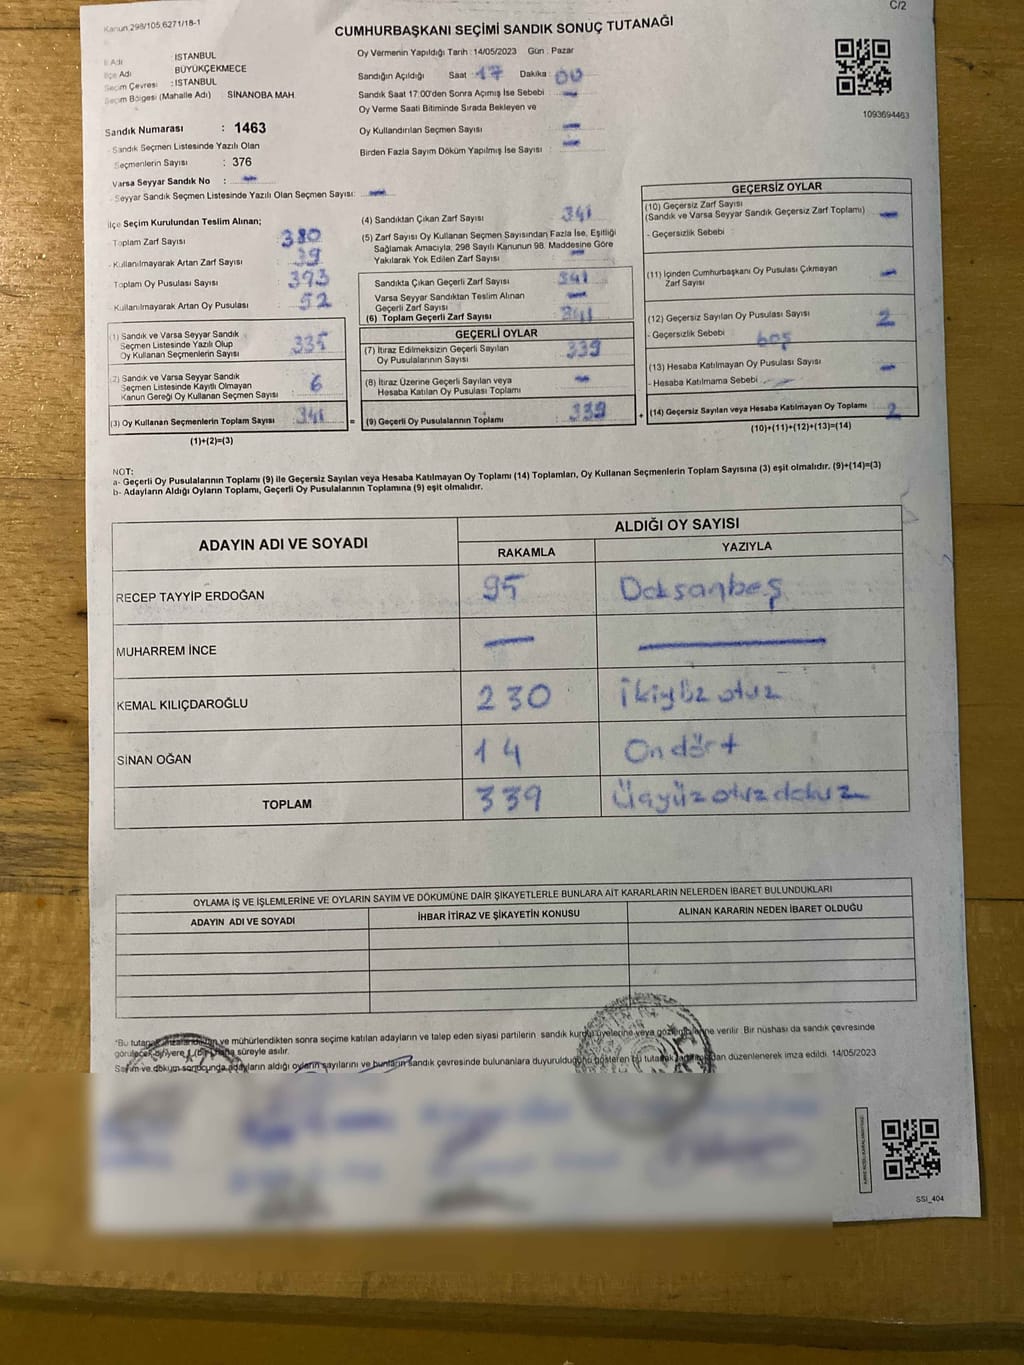 Kanun,298/105,6271/18-1
C/2
CUMHURBAŞKANI SEÇİMİ SANDIK SONUÇ TUTANAĞI
İl Adı : İSTANBUL
İlçe Adı BÜYÜKÇEKMECE
Seçim Çevresi : İSTANBUL
Seçim Bölgesi (Mahalle Adı) SİNANOBA MAH.
Sandık Numarası : 1463
- Sandık Seçmen Listesinde Yazılı Olan
Seçmenlerin Sayısı : 376
Varsa Seyyar Sandık No : —
- Seyyar Sandık Seçmen Listesinde Yazılı Olan Seçmen Sayısı: —
Oy Vermenin Yapıldığı Tarih : 14/05/2023 Gün : Pazar
Sandığın Açıldığı Saat : 17 Dakika : 00
Sandık Saat 17:00'den Sonra Açımış İse Sebebi : —
Oy Verme Saati Bitiminde Sırada Bekleyen ve
Oy Kullandırılan Seçmen Sayısı : —
Birden Fazla Sayım Döküm Yapılmış İse Sayısı : —
1093694463
İlçe Seçim Kurulundan Teslim Alınan;
- Toplam Zarf Sayısı : 380
- Kullanılmayarak Artan Zarf Sayısı : 39
Toplam Oy Pusulası Sayısı : 393
Kullanılmayarak Artan Oy Pusulası : 52
(1) Sandık ve Varsa Seyyar Sandık
Seçmen Listesinde Yazılı Olup
Oy Kullanan Seçmenlerin Sayısı : 335
(2) Sandık ve Varsa Seyyar Sandık
Seçmen Listesinde Kayıtlı Olmayan
Kanun Gereği Oy Kullanan Seçmen Sayısı : 6
(3) Oy Kullanan Seçmenlerin Toplam Sayısı : 341
(1)+(2)=(3)
(4) Sandıktan Çıkan Zarf Sayısı : 341
(5) Zarf Sayısı Oy Kullanan Seçmen Sayısından Fazla İse, Eşitliği
Sağlamak Amacıyla, 298 Sayılı Kanunun 98. Maddesine Göre
Yakılarak Yok Edilen Zarf Sayısı : —
Sandıkta Çıkan Geçerli Zarf Sayısı : 341
Varsa Seyyar Sandıktan Teslim Alınan
Geçerli Zarf Sayısı : —
(6) Toplam Geçerli Zarf Sayısı : 341
GEÇERLİ OYLAR
(7) İtiraz Edilmeksizin Geçerli Sayılan
Oy Pusulalarının Sayısı : 339
(8) İtiraz Üzerine Geçerli Sayılan veya
Hesaba Katılan Oy Pusulası Toplamı : —
= (9) Geçerli Oy Pusulalarının Toplamı : 339
GEÇERSİZ OYLAR
(10) Geçersiz Zarf Sayısı
(Sandık ve Varsa Seyyar Sandık Geçersiz Zarf Toplamı) : —
- Geçersizlik Sebebi
(11) İçinden Cumhurbaşkanı Oy Pusulası Çıkmayan
Zarf Sayısı : —
(12) Geçersiz Sayılan Oy Pusulası Sayısı : 2
- Geçersizlik Sebebi boş
(13) Hesaba Katılmayan Oy Pusulası Sayısı : —
- Hesaba Katılmama Sebebi : —
+ (14) Geçersiz Sayılan veya Hesaba Katılmayan Oy Toplamı : 2
(10)+(11)+(12)+(13)=(14)
NOT:
a- Geçerli Oy Pusulalarının Toplamı (9) ile Geçersiz Sayılan veya Hesaba Katılmayan Oy Toplamı (14) Toplamları, Oy Kullanan Seçmenlerin Toplam Sayısına (3) eşit olmalıdır. (9)+(14)=(3)
b- Adayların Aldığı Oyların Toplamı, Geçerli Oy Pusulalarının Toplamına (9) eşit olmalıdır.
ADAYIN ADI VE SOYADI ALDIĞI OY SAYISI
RAKAMLA YAZIYLA
RECEP TAYYİP ERDOĞAN 95 Doksanbeş
MUHARREM İNCE — —
KEMAL KILIÇDAROĞLU 230 İkiyüz otuz
SİNAN OĞAN 14 On dört
TOPLAM 339 Üçyüz otuz dokuz
OYLAMA İŞ VE İŞLEMLERİNE VE OYLARIN SAYIM VE DÖKÜMÜNE DAİR ŞİKAYETLERLE BUNLARA AİT KARARLARIN NELERDEN İBARET BULUNDUKLARI
ADAYIN ADI VE SOYADI İHBAR İTİRAZ VE ŞİKAYETİN KONUSU ALINAN KARARIN NEDEN İBARET OLDUĞU
"Bu tutanak imzalandıktan ve mühürlendikten sonra seçime katılan adayların ve talep eden siyasi partilerin sandık kurulu üyelerine veya gözlemcilerine verilir. Bir nüshası da sandık çevresinde
görülecek bir yere 1 (bir) hafta süreyle asılır.
Sayım ve döküm sonucunda adayların aldığı oyların sayılarını ve bunların sandık çevresinde bulunanlara duyurulduğunu gösteren bu tutanak düzenlenerek imza edildi. 14/05/2023
SSİ_404